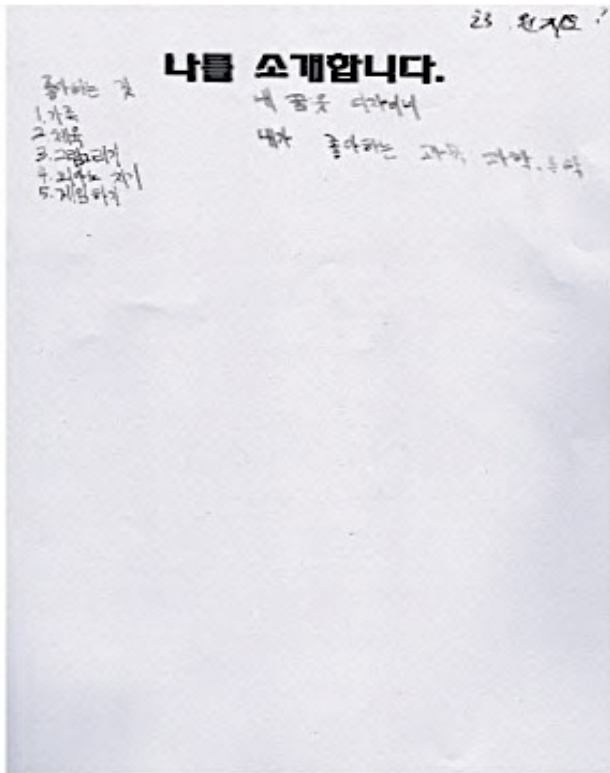 23. 원지호
나를 소개합니다.
좋아하는 것
1. 가족
2. 체육
3. 그림그리기
4. 피아노 치기
5. 게임하기
내 꿈은 디자이너
내가 좋아하는 과목 과학, 음악